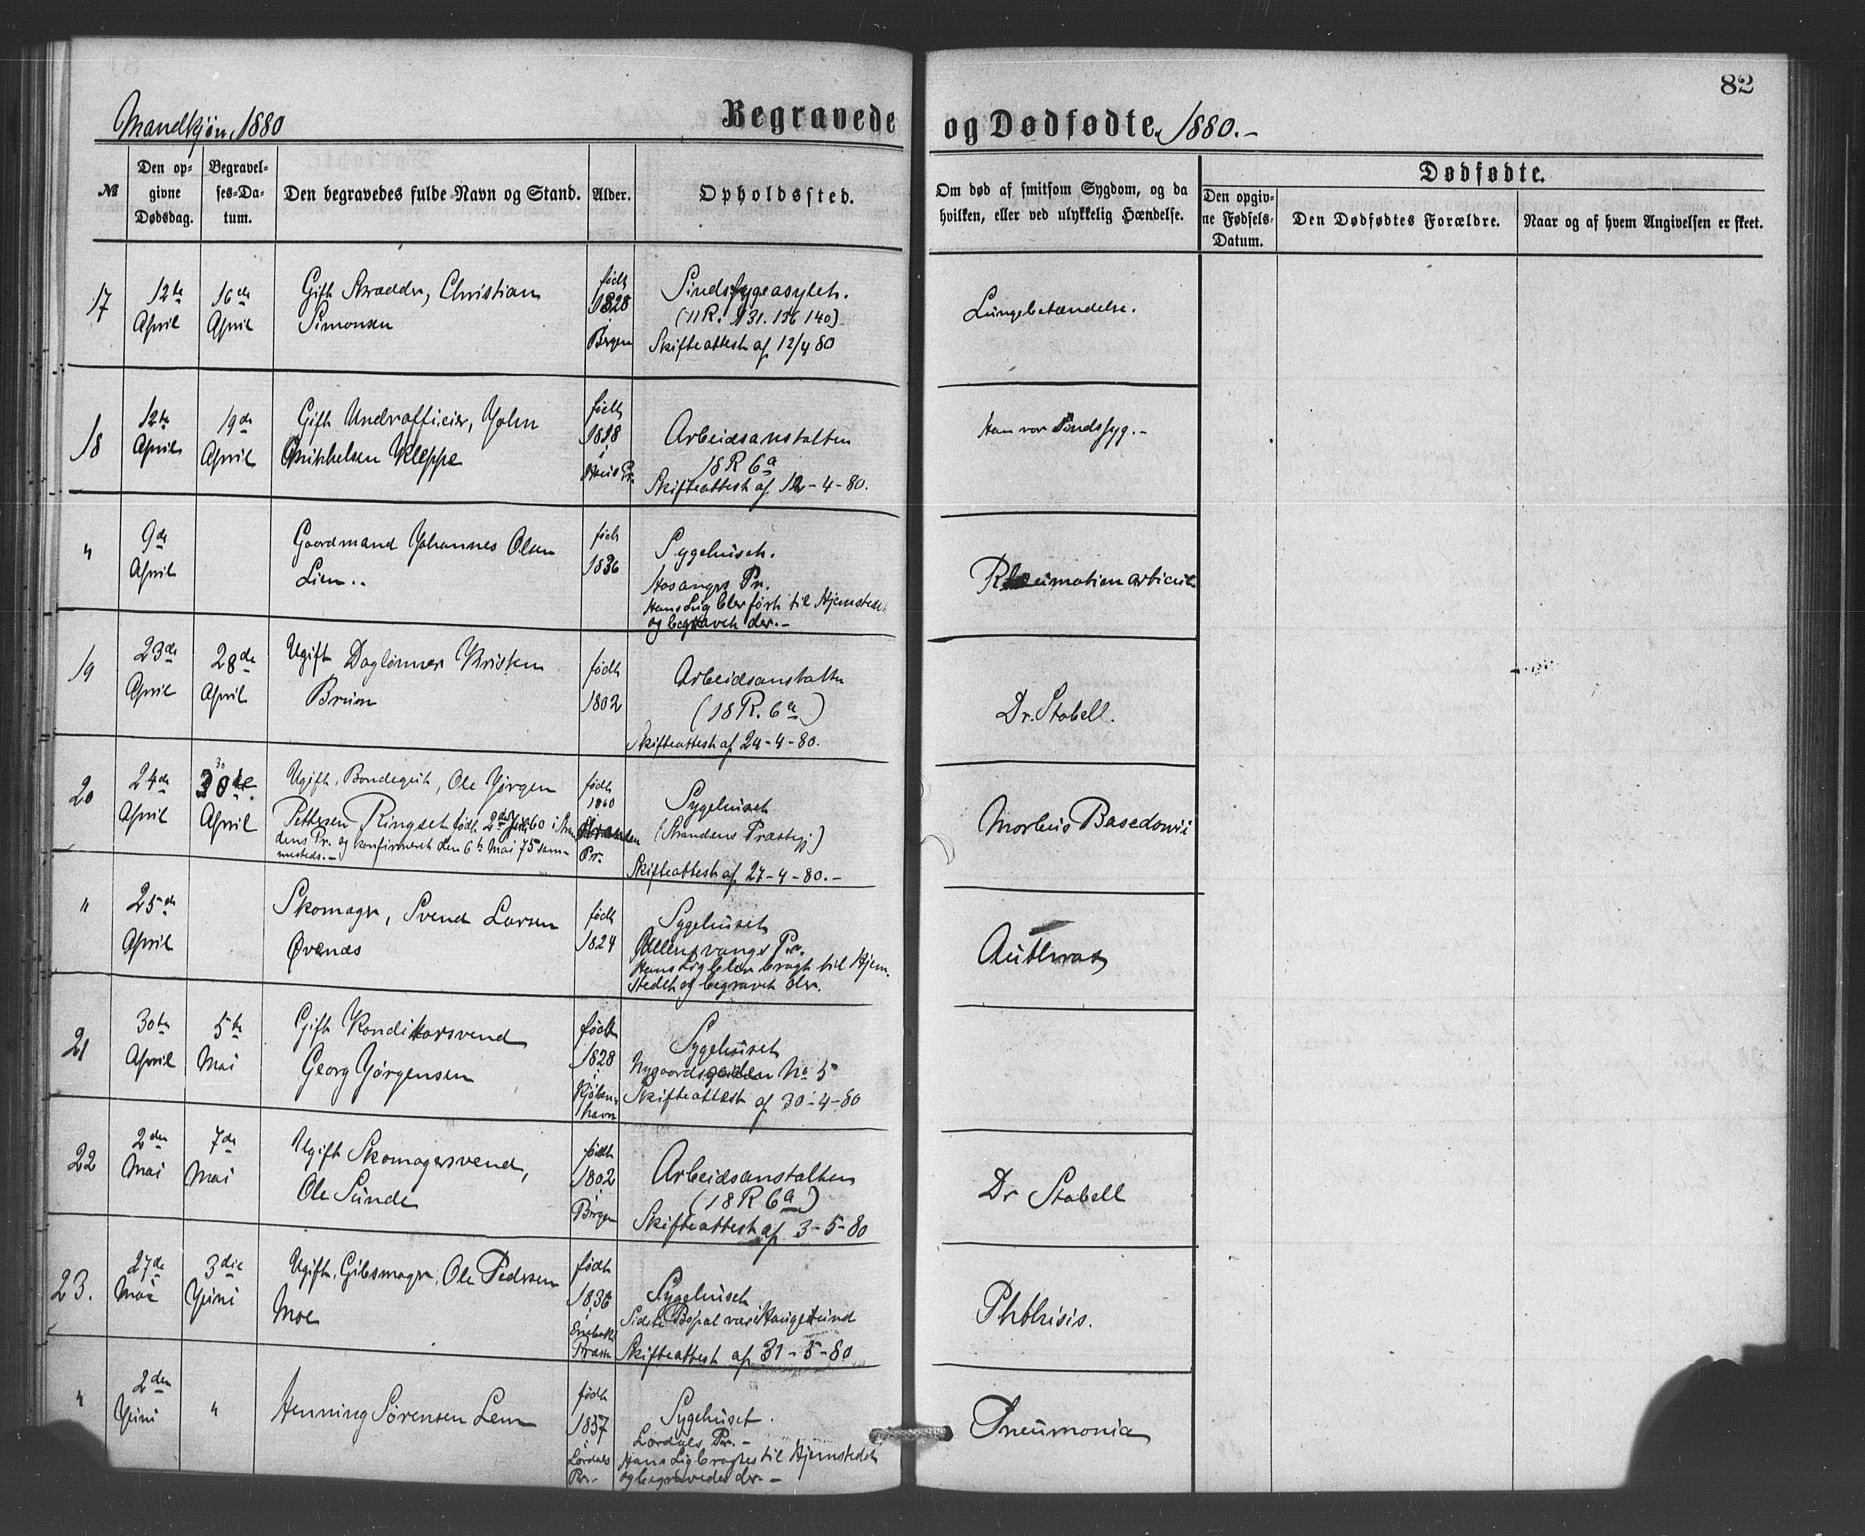 82
Mandkjøn, 1880
Begravede og Dødfødte. 1880.-
№
Den op-
givne
Dødsdag.
Begravel-
ses-Da-
tum.
Den begravedes fulde Navn og Stand.
Alder.
Opholdssted.
Om død af smitsom Sygdom, og da
hvilken, eller ved ulykkelig Hændelse.
Dødfødte.
Den opgiv-
ne Fødsels-
Datum.
Den Dødfødtes Forældre.
Naar og af hvem Angivelsen er skeet.
17
12te
April
16de
April
Gift Skrædder, Christian
Simonsen
født
1828
i
Bergen
Sindssygeasylet.
(11R. 131. 156 140)
Skifteattest af 12/4 80
Lungebetændelse.
18
12te
April
19de
April
Gift Underofficier, John
Mikkelsen Kleppe
født
1818
i
Haus Pr.
Arbeidsanstalten
18 R 6a
Skifteattest af 12-4-80.
Han var Sindssyg.-
"
9de
April
Gaardmand Johannes Olsen
Lien..
født
1836
Sygehuset.
Hosanger Pr.
Hans Lig blev ført til Hjemstedet
og begravet der.-
Rheumatien articul
19
23de
April
28de
April
Ugift Daglønner Kristen
Bruun
født
1802
Arbeidsanstalten
(18 R. 6a)
Skifteattest af 24-4-80.
Dr. Stabell.
20
24de
April
30
30te.
April
Ugift, Bondegut, Ole Jørgen
Pettersen Ringset født 2den Juli 60 i Stran
dens Pr. og konfirmeret den 6te Mai 75 sam-
mesteds.-
født
1860
Stranden
Pr.
Sygehuset
(Strandens Præstegj)
Skifteattest af 27-4-80.-
Morbus Basedowii
"
25de
April
Skomager, Svend Larsen
Øvenæs
født
1824
Sygehuset
Ullensvangs Pr.
Hans Lig blev bragt til Hjem-
stedet og begravet der.
Anthrax
21
30te
April
5te
Mai
Gift Konditorsvend
Georg Jørgensen
født
1828
i
Kjøben-
havn
Sygehuset
Nygaardsgaden No 5
Skifteattest af 30-4-80
22
2den
Mai
7de
Mai
Ugift Skomagersvend,
Ole Sunde
født
1802
i
Bergen
Arbeidsanstalten
(18 R 6a)
Skifteattest af 3-5-80
Dr Stabell
23.
27de
Mai
3die
Juni
Ugift, Gibsmager, Ole Pedersen
Moe
født
1836
i
Enebak
Præstg
Sygehuset
Sidste Bopæl var i Haugesund
Skifteattest af 31-5-80
Phthisis.
"
2den
Juni
"
Henning Sørensen Lem
født
1857
i
Lærdals
Pr.-
Sygehuset.
Lærdals Pr.-
Hans Lig bragtes til Hjemstedet
og begravedes der.-
Pneumonia